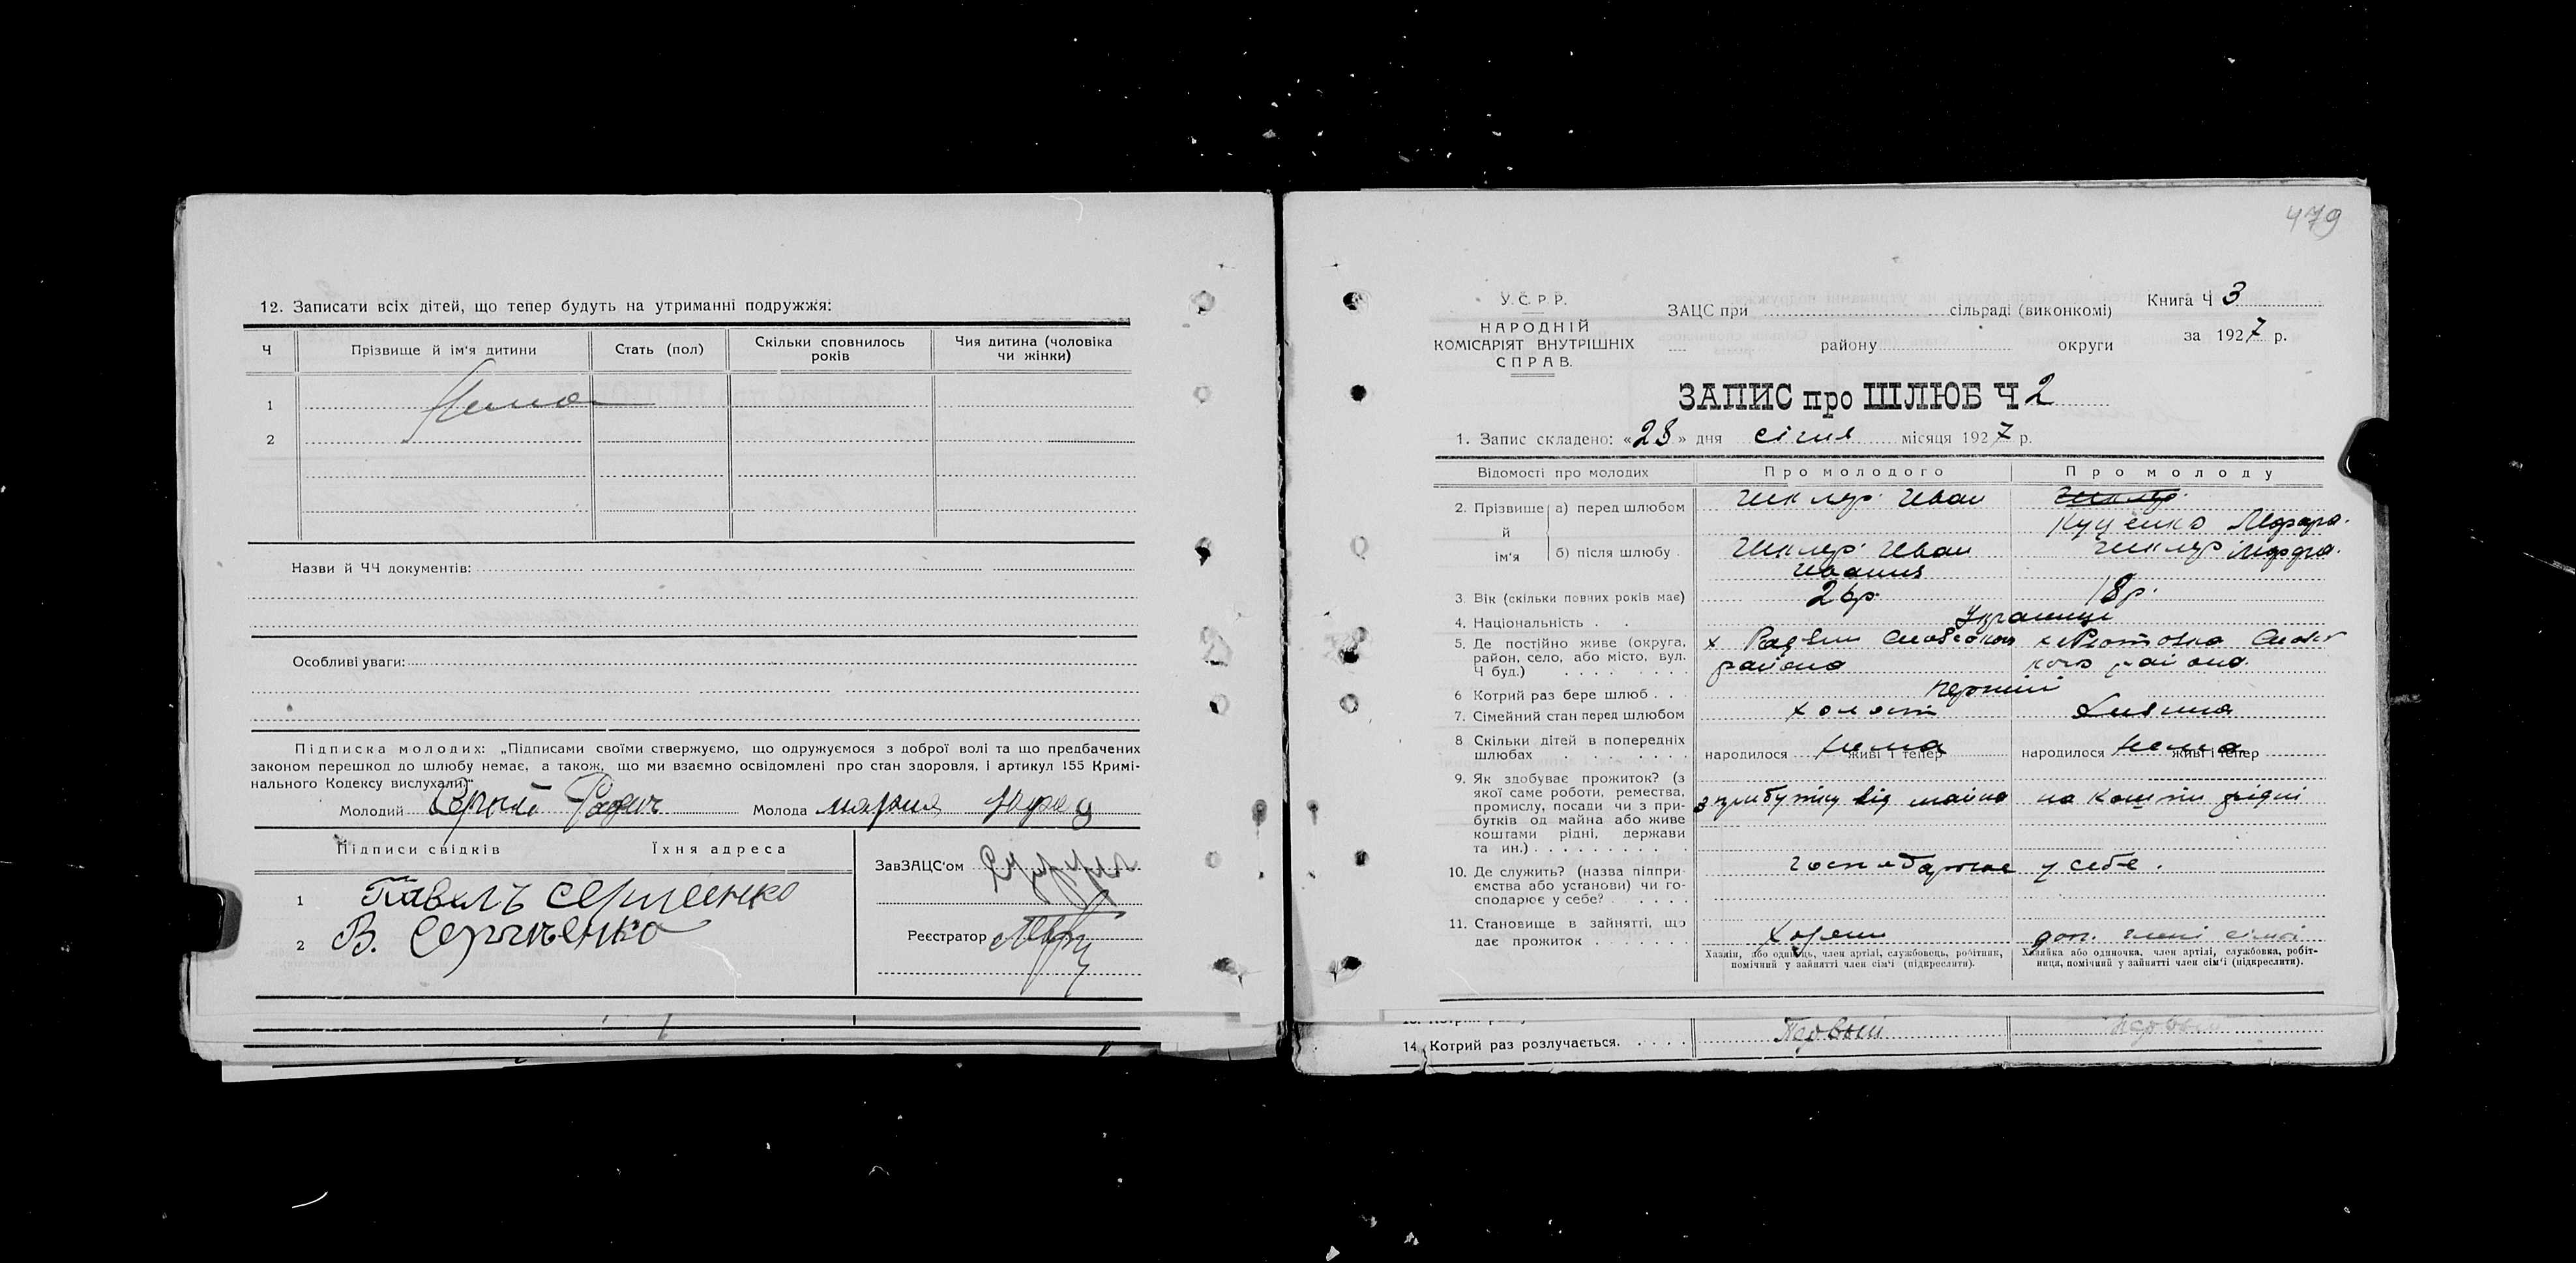 12. Записати всіх дітей, що тепер будуть на утриманні подружжя:
Ч
Прізвище й ім'я дитини
Стать (пол)
Скільки сповнилось років
Чия дитина (чоловіка чи жінки)
1 Нема
2
Назви й ЧЧ документів:
Особливі уваги:
Підписка молодих: „Підписами своїми стверджуємо, що одружуємося з доброї волі та що предбачених
законом перешкод до шлюбу немає, а також, що ми взаємно освідомлені про стан здоровля, і артикул 155 Кримі-
нального Кодексу вислухали"
Молодий
Молода мария
Підписи свідків
Їхня адреса
1 Павелъ Сергиенко
2 В. Сергиенко
ЗавЗАЦС'ом
Реєстратор
479
У. С. Р. Р.
НАРОДНІЙ
КОМІСАРІЯТ ВНУТРІШНІХ
СПРАВ.
ЗАЦС при сільраді (виконкомі)
району округи
Книга Ч 3
за 1927 р.
ЗАПИС про ШЛЮБ Ч 2
1. Запис складено: «28» дня січня місяця 1927 р.
Відомості про молодих
Про молодого
Про молоду
2. Прізвище й ім'я
а) перед шлюбом
Шкляр Иван
Шкляр
Куценко
б) після шлюбу
Шкляр Иван
Шкляр
3. Вік (скільки повних років має)
26р.
18р.
4. Національність
Украинці
5. Де постійно живе (округа,
район, село, або місто, вул.
Ч буд.)
х
района
х
района
6 Котрий раз бере шлюб
перший
7. Сімейний стан перед шлюбом
холост
дивина
8 Скільки дітей в попередніх
шлюбах
народилося нема живі і тепер
народилося нема живі і тепер
9. Як здобуває прожиток? (з
якої саме роботи, ремества,
промислу, посади чи з при-
бутків од майна або живе
коштами рідні, держави
та ин.)
з прибутку від майна
на кошти рідні
10. Де служить? (назва підпри-
ємства або установи) чи го-
сподарює у себе?
господарює у себе.
11. Становище в зайнятті, що
дає прожиток
Хазяїн, або одинець, член артілі, службовець, робітник,
помічний у зайнятті член сім'ї (підкреслити).
Хазяйка або одиночка, член артілі, службовка, робіт-
ниця, помічний у зайнятті член сім'ї (підкреслити).
Первый
первый
14. Котрий раз розлучається.